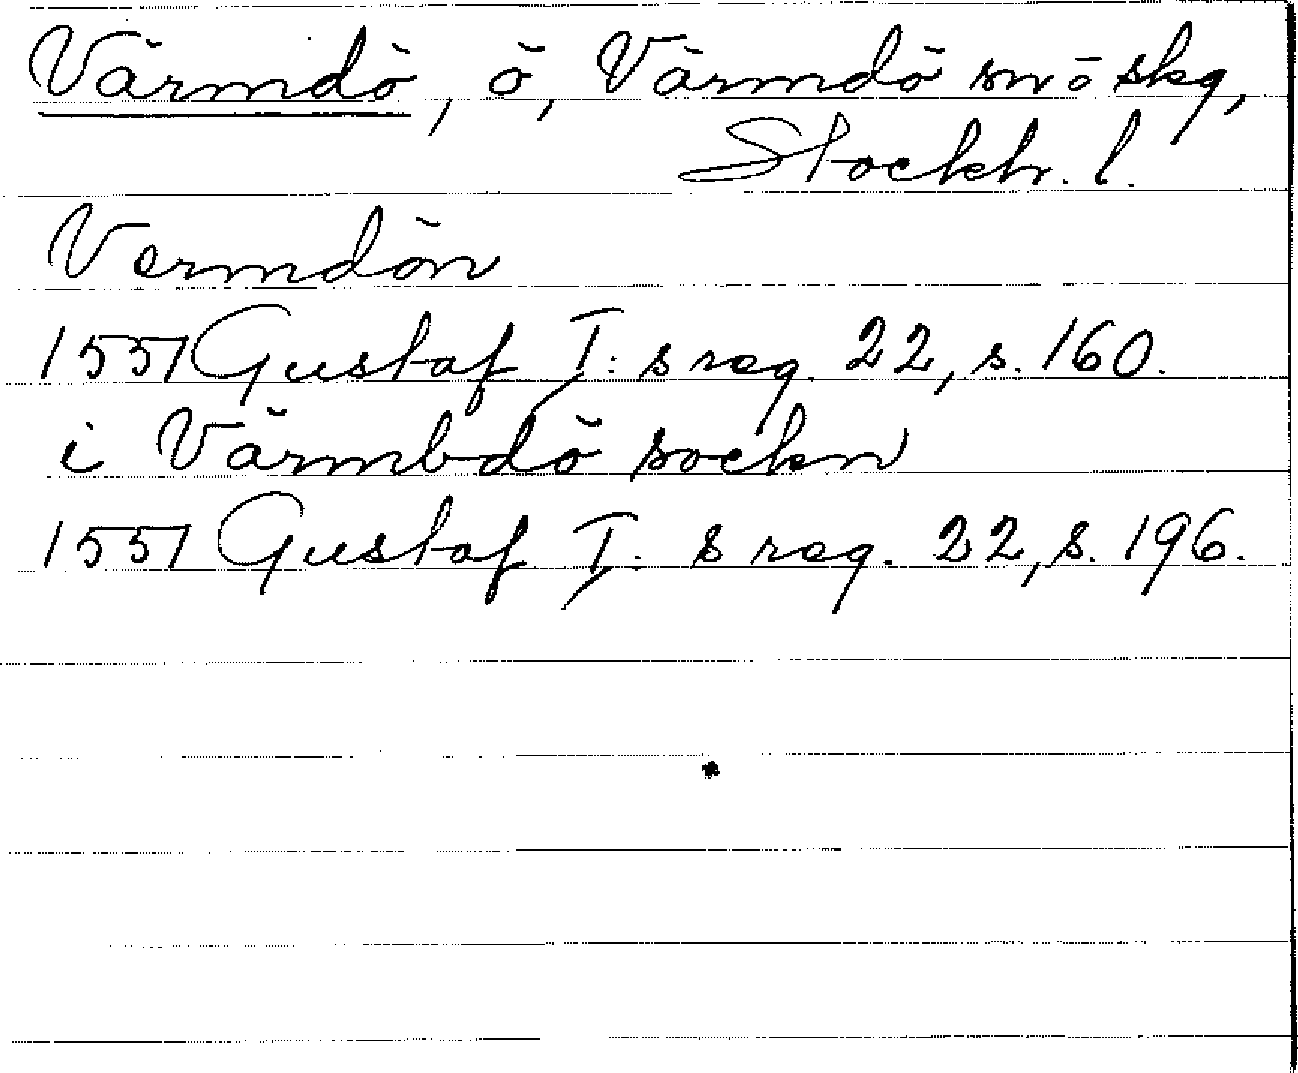 Värmdö, ö, Värmdö sn ö skg,
Stockh. l.
Vermdön
1551 Gustaf I: s reg. 22, s. 160.
i Värmbdö sockn
1551 Gustaf I: s reg. 22, s. 196.